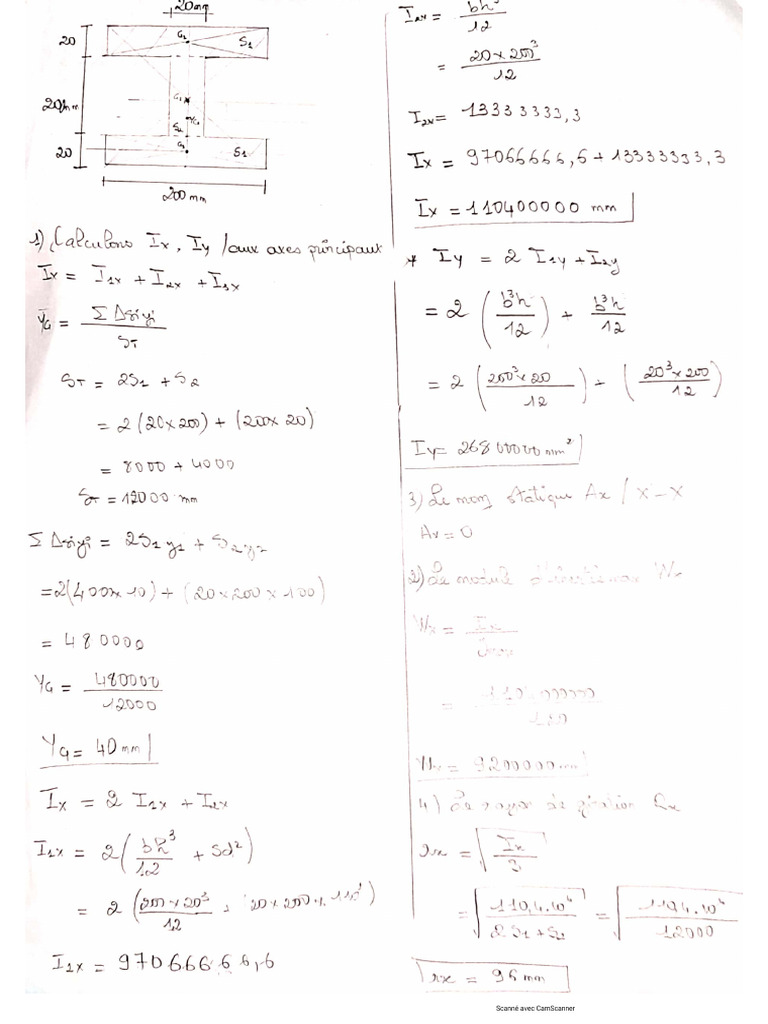 20mm
20
G2
S1
200mm
G1
S2
YG
20
G3
S1
200 mm
1) Calculons Ix, Iy /aux axes principaux
Ix = I1x + I2x + I3x
YG = Σ Δsiyi / ST
ST = 2S1 + S2
= 2(20×200) + (200×20)
= 8000 + 4000
ST = 12000 mm
Σ Δsiyi = 2S1y1 + S2y2
=2(400×10) + (20×200×100)
= 480000
YG = 480000 / 12000
YG = 40 mm
Ix = 2 I1x + I2x
I1x = 2(bh³/12 + Sd²)
= 2(200×20³/12 + (20×200×110²)
I1x = 97066666,6
I2x = bh³/12
= 20×200³/12
I2x = 13333333,3
Ix = 97066666,6+13333333,3
Ix = 110400000 mm
* Iy = 2 I1y + I2y
= 2(b³h/12) + b³h/12
= 2(200³×20/12) + (20³×200/12)
Iy= 26800000 mm²
3) Le mom statique Ax / X-X
Ax = 0
2) Le module d'inertie max Wx
Wx = Ix / Ymax
= 110400000 / 120
Wx = 9200000mm
4) Le rayon de giration Rx
rx = √Ix/S
= √110,4.10⁶ / 2S1+S2 = √110,4.10⁶ / 12000
rx = 96 mm
Scanné avec CamScanner